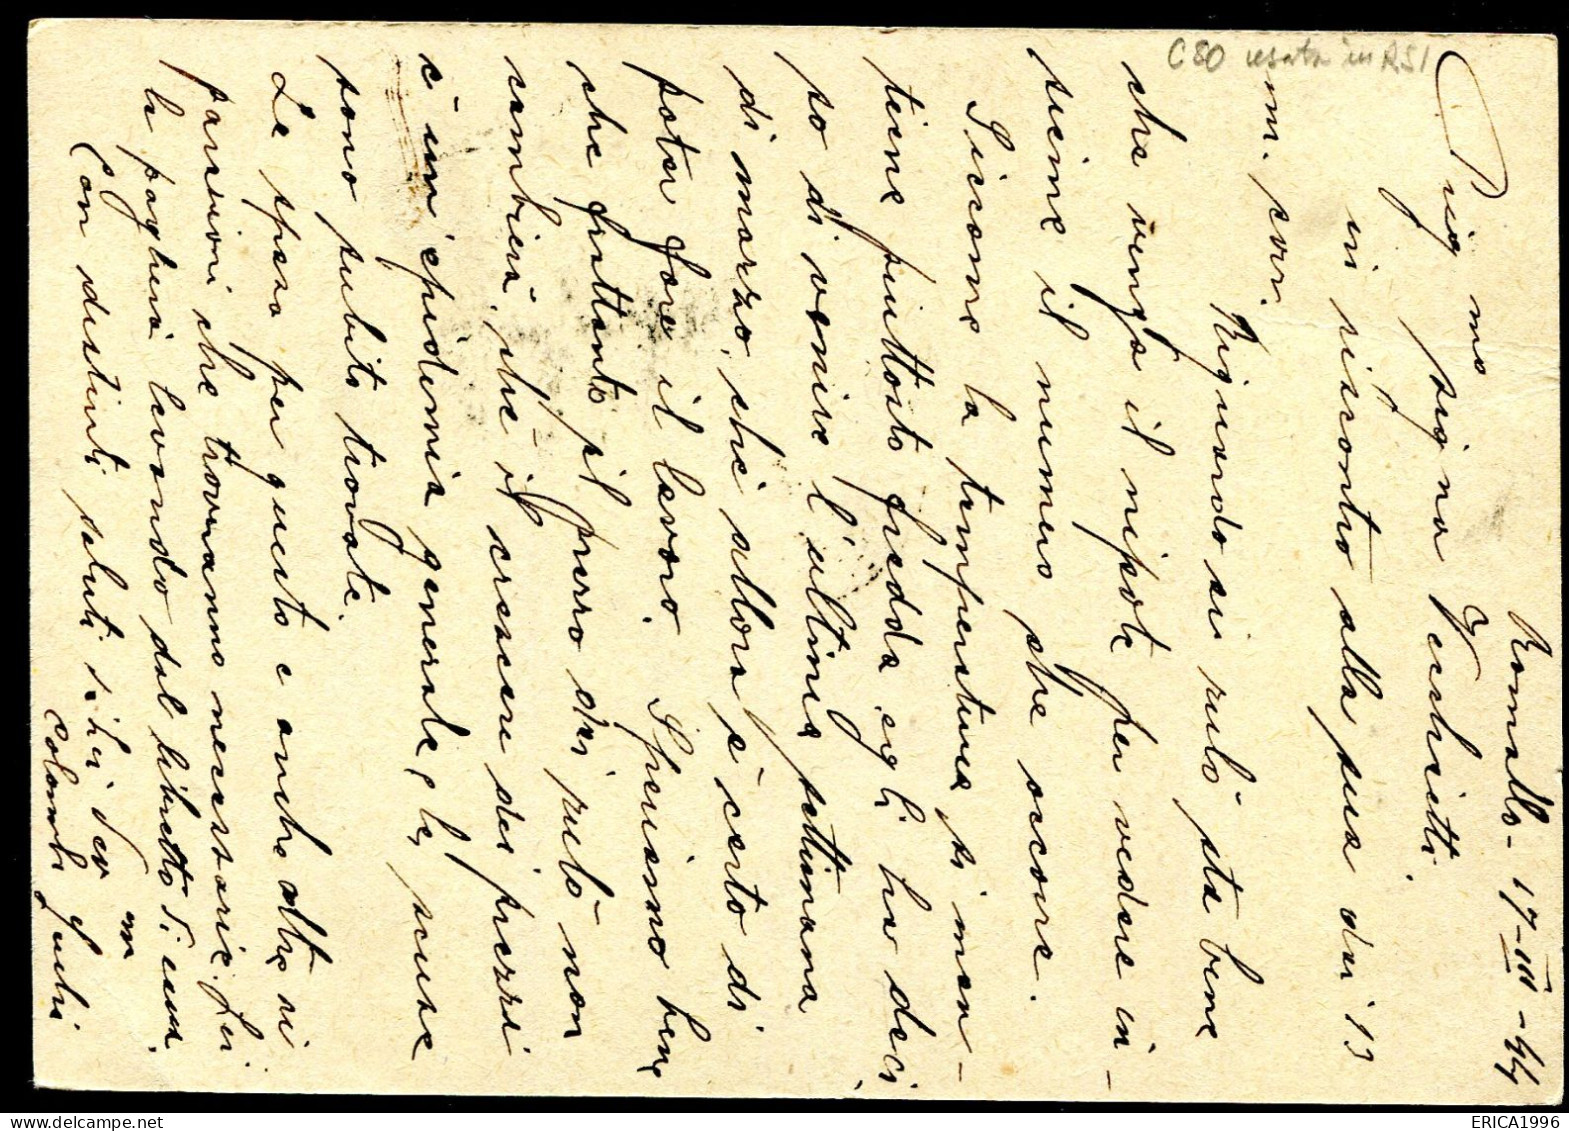 C80 usata in RSI
Romallo - 17-III-44
Preg mo sig na Vecchietti.
in riscontro alla sua del 13
m. corr.
Riguardo ai culò sta bene
che venga il nipote per vedere in-
sieme il numero che occorre.
Siccome la temperatura si man-
tiene piuttosto fredda egli ha deci
so di venire l'ultima settimana
di marzo, chè allora è certo di
poter fare il lavoro. Speriamo bene
che frattanto il prezzo dei culò non
cambierà, chè il crescere dei prezzi
è un'epidemia generale, le scuse
sono subito trovate.
La spesa per questo e anche altre ri
parazioni che troveranno necessarie. Lei
la pagherà levando dal libretto di casa.
Con distinti saluti a Lei dev m
Colomba Giulia
ERICA1996